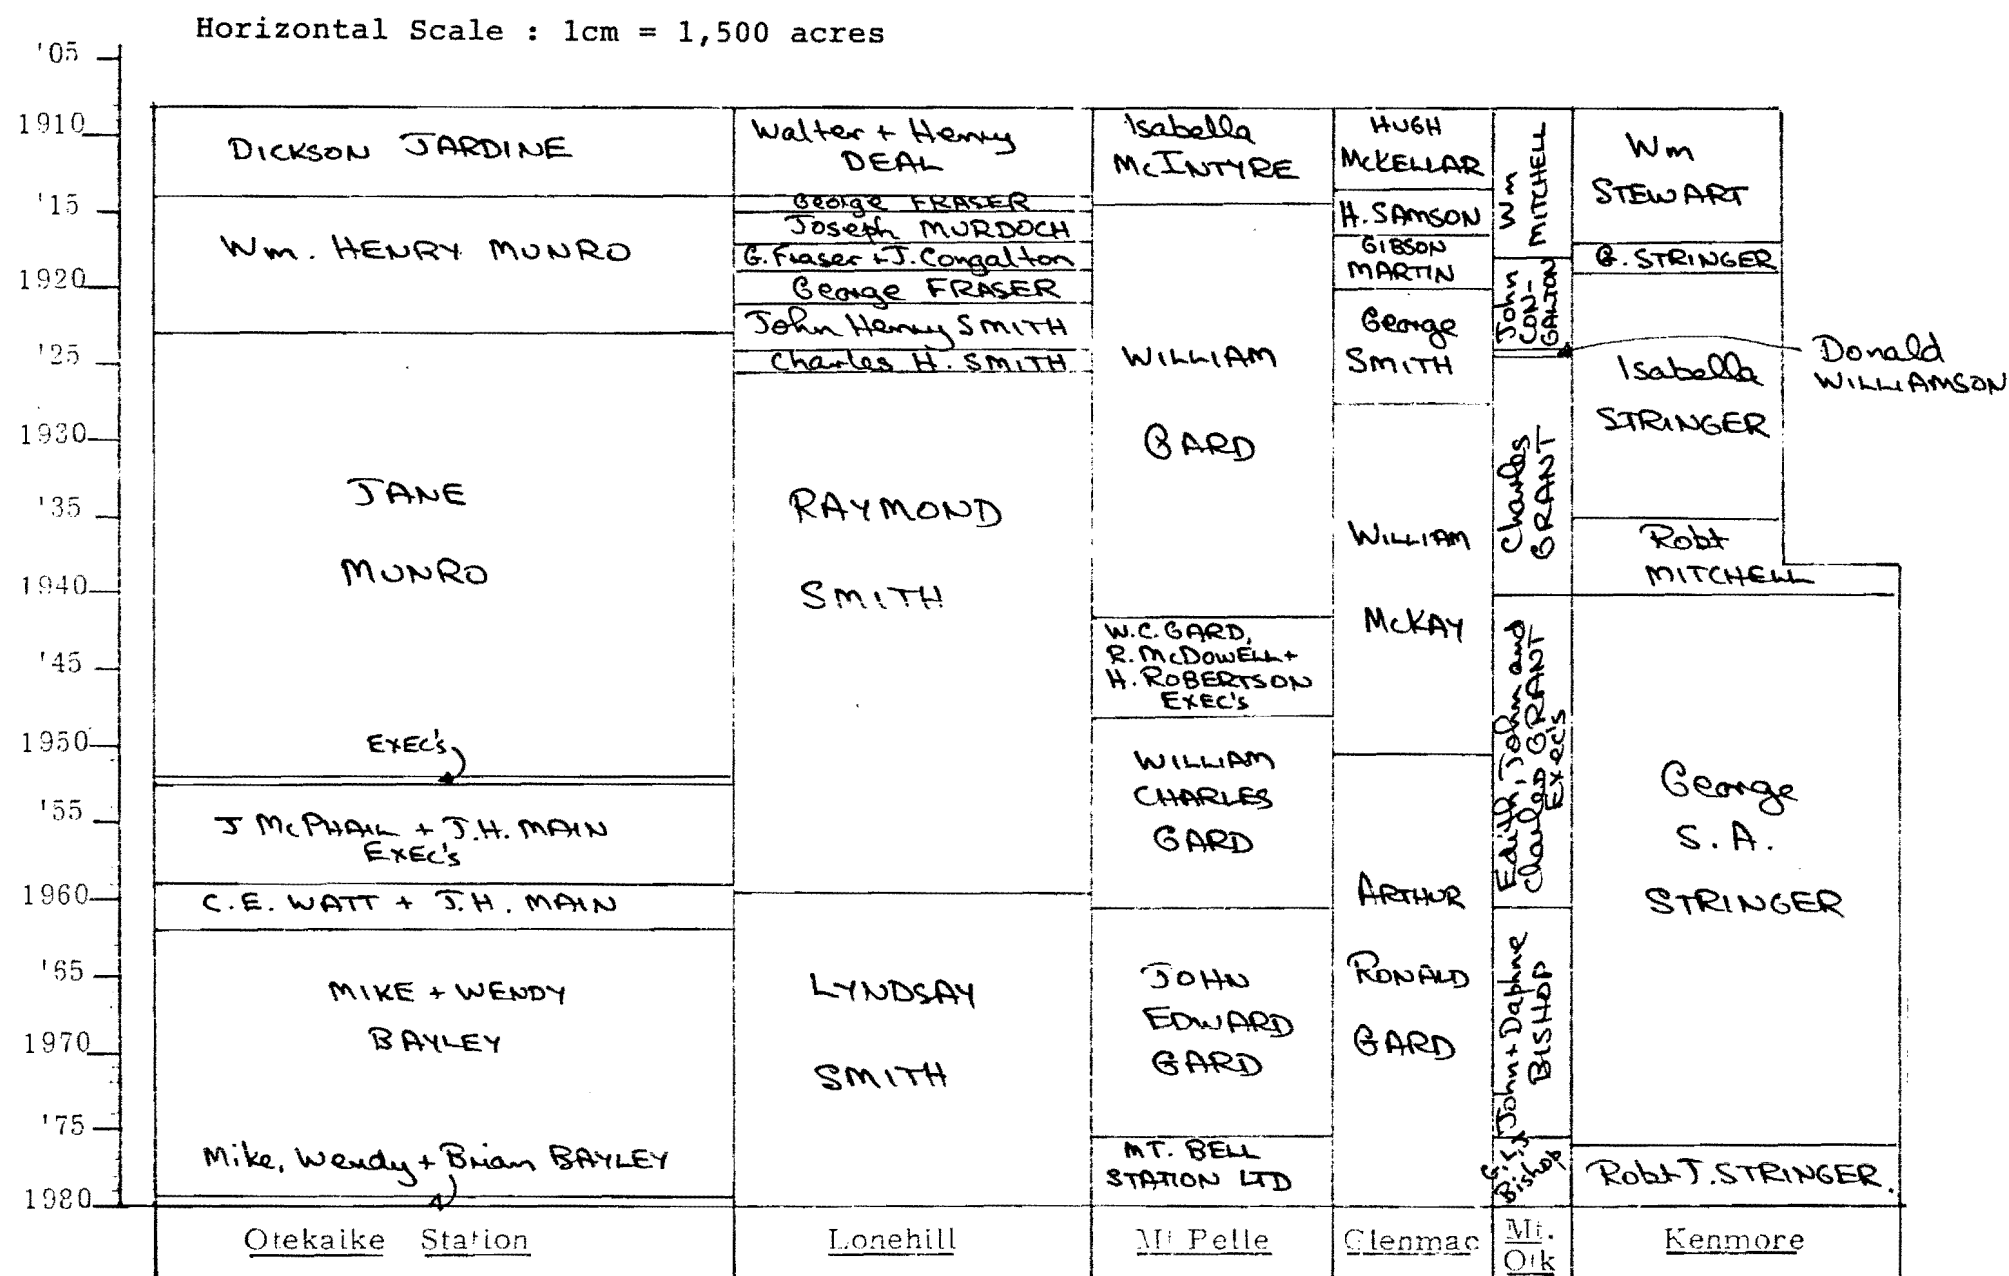 Horizontal Scale : 1cm = 1,500 acres
'05
1910
'15
1920
'25
1930
'35
1940
'45
1950
'55
1960
'65
1970
'75
1980
DICKSON JARDINE
Wm. HENRY MUNRO
JANE
MUNRO
EXEC'S
J McPHAIL + J.H. MAIN
EXEC'S
C.E. WATT + J.H. MAIN
MIKE + WENDY
BAYLEY
Mike, Wendy + Brian BAYLEY
Otekaike Station
Walter + Henry
DEAL
George FRASER
Joseph MURDOCH
G. Fraser + J. Congalton
George FRASER
John Henry SMITH
Charles H. SMITH
RAYMOND
SMITH
LYNDSAY
SMITH
Lonehill
Isabella
McINTYRE
WILLIAM
GARD
W.C. GARD,
R. McDOWELL +
H. ROBERTSON
EXEC'S
WILLIAM
CHARLES
GARD
JOHN
EDWARD
GARD
MT. BELL
STATION LTD
Mt Pelle
HUGH
McKELLAR
H. SAMSON
GIBSON
MARTIN
George
SMITH
WILLIAM
McKAY
ARTHUR
RONALD
GARD
Glenmac
Wm
MITCHELL
John
CON-
GALTON
Donald
WILLIAMSON
Charles
GRANT
Edith, John and
Charles GRANT
Exec's
John + Daphne
BISHOP
Bishop
Mt.
Otk
Wm
STEWART
G. STRINGER
Isabella
STRINGER
Robt
MITCHELL
George
S.A.
STRINGER
Robt J. STRINGER.
Kenmore